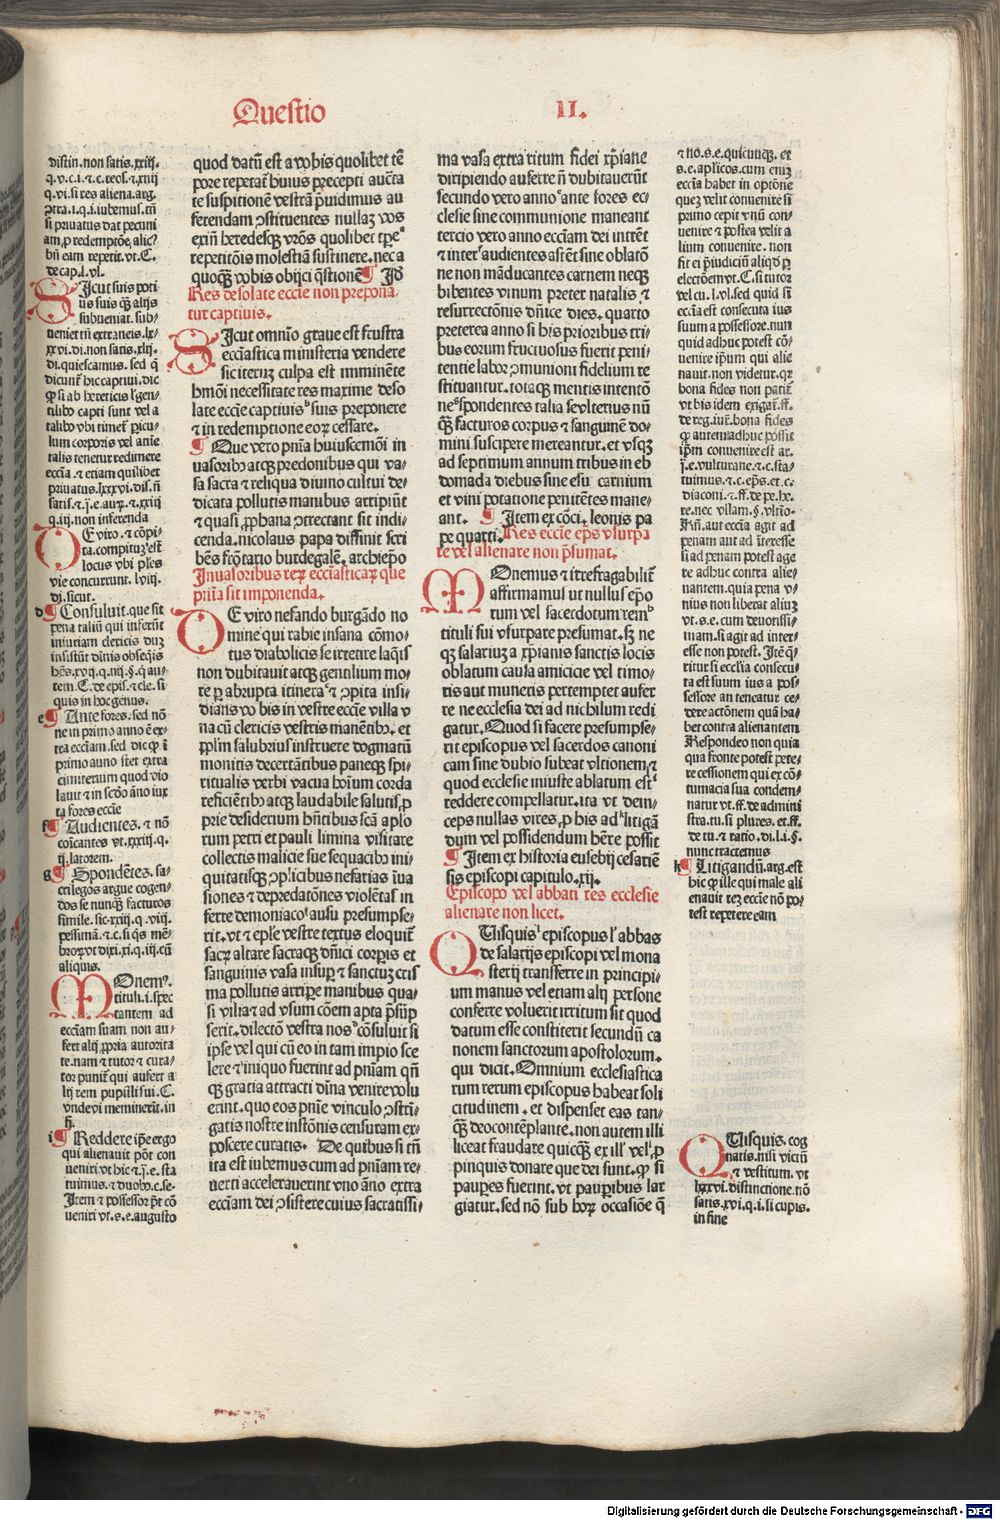 Questio II.
distin. non satis. xxiij.
q. v. c. i. ⁊ c. reos. ⁊ xxiij
q. vi. si res aliena. arg.
ꝯtra. i. q. i. iubemus. tn̄
si priuatus dat pecuni
am, ꝓ redemptōe, alic⁹
bn̄ eam repetit. vt. C.
de cap. l. vl.
Sicut suis poti
us suis qꝫ alijs
subueniat. sub⸗
ueniet tn̄ extraneis. lx⸗
xxvi. di. non satis. xlij.
di. quiescamus. sed q̄
dicunt̄ hic captiui. dic
ꝙ si ab hereticis l' gen⸗
tilibꝰ capti sunt vel a
talibꝰ vbi timet̄ ꝑicu⸗
lum corporis vel anīe
tales tenetur redimere
eccīa ⁊ etiam quilibet
priuatus. lxxxvi. dis. n̄
satis. ⁊ j. e. auꝝ. ⁊. xxiij
q. iij. non inferenda
De viro. ⁊ cōpi⸗
ta. compituꝫ est
locus vbi pl'es
vie concurrunt. lviij.
di. sicut.
d ¶ Consuluit. que sit
pena taliū qui inferūt
iniuriam clericis duꝫ
insistūt diuīs obseqijs
hēs. xvij. q. iiij. §. q̄ au⸗
tem. C. de epis. ⁊ cle. si
quis in hoc genus.
e ¶ Ante fores. sed nō⸗
ne in primo anno ē ex⸗
tra ecciam. sed dic ꝙ ī
primo anno stet extra
cimiterium quod vio
lauit ⁊ in scd̄o āno iux
ta fores eccīe
f ¶ Audientes. ⁊ nō
cōicantes vt. xxxiij. q.
ij. latorem.
g ¶ Spondētes. sa⸗
crilegos argue cogen⸗
dos se nunqꝫ facturos
simile. sic. xxiij. q. viij.
pessimā. ⁊ c. si q̄s mē⸗
broꝝ vt dixi. xi. q. iij. cū
aliquis.
Monem⁹.
tituli. i. spec
tantem ad
ecciam suam non au⸗
fert alij ꝓpria autorita
te. nam ⁊ tutor ⁊ cura⸗
tor punit̄ qui aufert a
lij rem pupilli sui. C.
vnde vi meminerit. in
fi.
i ¶ Reddere ip̄e ergo
qui alienauit pōt con
ueniri vt hic ⁊ j. e. sta
tuimus. ⁊ duobꝰ. c. se⸗
Item ⁊ possessor p̄t cō
ueniri vt. s. e. augusto
quod datū est a vobis quolibet tē
pore repetat̄ huius precepti aucta
te suspitionem vestrā p̄uidimus au
ferendam ꝯstituentes nullaꝫ vos
exin̄ heredesqꝫ vrōs quolibet tp̄e
repetitōis molestiā sustinere. nec a
quoqꝫ vobis obijci q̄stionē ¶ Id̄
Res desolate eccīe non prepona⸗
tur captiuis.
Sicut omnīo graue est frustra
ecciāstica ministeria vendere
sic iteruꝫ culpa est imminēte
hmōi necessitate res maxime deso
late eccīe captiuis suis preponere
⁊ in redemptione eoꝝ cessare.
¶ Que vero pn̄ia huiuscemōi in
uasoribꝰ atqꝫ predonibus qui va⸗
sa sacra ⁊ reliqua diuino cultui de⸗
dicata pollutis manibus arripiūt
⁊ quasi ꝓphana ꝯtrectant sit indi⸗
cenda. nicolaus papa diffinit scri
bēs frōtario burdegalē. archiepo
Inuasoribus reꝝ ecciasticaꝝ que
pn̄ia sit imponenda.
De viro nefando burgādo no
mine qui rabie insana cōmo⸗
tus diabolicis se irretire laq̄is
non dubitauit atqꝫ gentilium mo⸗
re ꝑ abrupta itinera ⁊ ꝯpita insi⸗
dians vobis in vestre eccīe villa v
na cū clericis vestris manētibꝰ. et
ppl'm salubrius instruere dogmatū
monitis decertātibus paneqꝫ spi⸗
ritualis verbi vacua hoīum corda
reficiētibꝰ atqꝫ laudabile salutis, ꝓ
prie desiderium hn̄tibus scā aplo
rum petri et pauli limina visitare
collectis malicie sue sequacibꝰ ini⸗
quitatisqꝫ ꝯplicibus nefarias īua
siones ⁊ depredatōnes violētas in
ferre demoniaco ausu presumpse⸗
rit. vt ⁊ eple vestre textus eloquit̄
sacꝝ altare sacraqꝫ dn̄ici corpis et
sanguinis vasa insup ⁊ sanctuꝫ cris
ma pollutis arripe manibus qua⸗
si vilia ⁊ ad vsum cōem apta p̄sūp
serit. dilectō vestra nos cōsuluit si
ipse vel qui cū eo in tam impio sce
lere ⁊ iniquo fuerint ad pn̄iam qn̄
qꝫ gratia attracti dn̄a venire volu
erint. quo eos pn̄ie vinculo ꝯstrī⸗
gatis nostre instōnis censuram ex⸗
poscere curatis. De quibus si tn̄
ita est iubemus cum ad pn̄iam re⸗
uerti accelerauerint vno āno extra
ecciam dei ꝯsistere cuius sacratissi⸗
ma vasa extra ritum fidei xp̄iane
diripiendo auferre n̄ dubitauerūt
secundo vero anno ante fores ec⸗
clesie sine communione maneant
tercio vero anno ecciam dei intrēt
⁊ inter audientes astēt sine oblatō
ne non māducantes carnem neqꝫ
bibentes vinum preter natalis ⁊
resurrectōnis dn̄ice dies. quarto
preterea anno si his prioribus tri⸗
bus eorum fructuosus fuerit peni⸗
tentie labor ꝯmunioni fidelium re
stituantur. totaqꝫ mentis intentō
ne spondentes talia se vlterius nū
qꝫ facturos corpus ⁊ sanguinē do⸗
mini suscipere mereantur. et vsqꝫ
ad septimum annum tribus in eb
domada diebus sine esu carnium
et vini potatione penitētes mane⸗
ant. ¶ Item ex cōci. leonis pa
pe quarti. Res eccīe ep̄s vsurpa
re vel alienare non p̄sumat.
Monemus ⁊ irrefragabilit̄
affirmamus ut nullus epō
rum vel sacerdotum rem
tituli sui vsurpare presumat. sꝫ ne
qꝫ salariuꝫ a xp̄ianis sanctis locis
oblatum causa amicicie vel timo⸗
ris aut muneris pertemptet aufer
re ne ecclesia dei ad nichilum redi
gatur. Quod si facere presumpse⸗
rit episcopus vel sacerdos canoni
cam sine dubio subeat vltionem ⁊
quod ecclesie iniuste ablatum est
reddere compellatur. ita vt dein⸗
ceps nullas vires, ꝓ his ad litigā
dum vel possidendum hēre possit
¶ Item ex historia eusebij cesariē
sis episcopi capitulo. xij.
Episcopo vel abbati res ecclesie
alienare non licet.
Quisquis episcopus l' abbas
de salarijs episcopi vel mona
sterij transferre in principi⸗
um manus vel etiam alij persone
conferre voluerit irritum sit quod
datum esse constiterit secundū ca
nonem sanctorum apostolorum.
qui dicit. Omnium ecclesiastica
rum rerum episcopus habeat soli
citudinem. et dispenset eas tan⸗
qꝫ deo contēplante. non autem illi
liceat fraudare quicqꝫ ex ill' vel, ꝓ
pinquis donare que dei sunt. ꝙ si
pauꝑes fuerint. vt pauꝑibus lar
giatur. sed nō sub hoꝝ occasiōe q̄
⁊ no. s. e. quicūqꝫ. et
s. e. aplicos. cum eniꝫ
eccīa habet in optōne
queꝫ velit conuenire si
primo cepit vnū con⸗
uenire ⁊ postea velit a
lium conuenire. non
fit ei p̄iudiciū aliqd̄ ꝑ
electōem vt. C. si tutor
vel cu. l. vl. sed quid si
eccīa est consecuta ius
suum a possessore. nun
quid adhuc potest cō⸗
uenire ip̄um qui alie
nauit. non videtur. qꝛ
bona fides non patit̄
vt bis idem exigat̄. ff.
de reg. iur̄. bona fides
ꝙ autem adhuc possit
ip̄m conuenire est ar.
j. e. vulturane. ⁊ c. sta⸗
tuimus. ⁊. c. ep̄s. et. c.
diaconi. ⁊. ff. de pe. he.
re. nec vllam. §. vltīo.
Rn̄. aut eccīa agit ad
penam aut ad īteresse
si ad penam potest age
re adhuc contra alie⸗
nantem. quia pena v⸗
nius non liberat aliuꝫ
vt. s. e. cum deuotissi⸗
mam. si agit ad inter⸗
esse non potest. Itē q̄⸗
ritur si ecclīa consecu⸗
ta est suum ius a pos⸗
sessore an teneatur ce⸗
dere actōnem quā ha⸗
bet contra alienantem
Respondeo non quia
qua fronte potest pete⸗
re cessionem qui ex cō⸗
tumacia sua condem⸗
natur vt. ff. de admini
stra. tu. si plures. et. ff.
de tu. ⁊ ratio. di. l. i. §.
nunc tractemus
k ¶ Litigandū. arg. est
hic ꝙ ille qui male ali
enauit reꝫ eccīe nō po⸗
test repetere eam
Quisquis. cog
natis. nisi victū
⁊ vestitum. vt
lxxxvi. distinctione. nō
satis. xvi. q. i. si cupis.
in fine
Digitalisierung gefördert durch die Deutsche Forschungsgemeinschaft - DFG